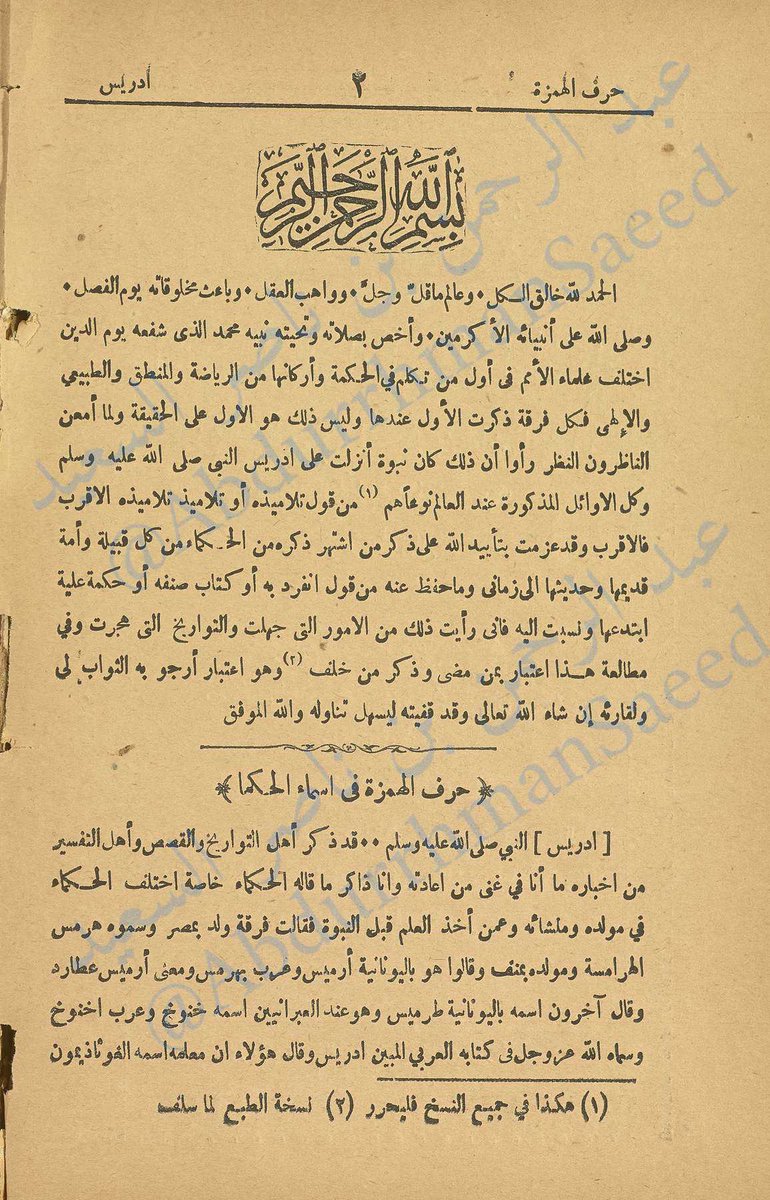 حرف الهمزة ٢ أدريس
بسم الله الرحمن الرحيم
الحمد لله خالق الكل • وعالم ما قلّ وجلّ • وواهب العقل • وباعث مخلوقاته يوم الفصل •
وصلى الله على أنبيائه الأكرمين • وأخص بصلاته وتحيته نبيه محمد الذى شفعه يوم الدين
اختلف علماء الأمم فى أول من تكلم في الحكمة وأركانها من الرياضة والمنطق والطبيعي
والإلهى فكل فرقة ذكرت الأول عندها وليس ذلك هو الاول على الحقيقة ولما أمعن
الناظرون النظر رأوا أن ذلك كان نبوة أنزلت على ادريس النبي صلى الله عليه وسلم
وكل الاوائل المذكورة عند العالم نوعاً هم (١) من قول تلاميذه أو تلاميذ تلاميذه الاقرب
فالاقرب وقد عزمت بتأييد الله على ذكر من اشتهر ذكره من الحكماء من كل قبيلة وأمة
قديمها وحديثها الى زمانى وما حفظ عنه من قول انفرد به أو كتاب صنفه أو حكمة علية
ابتدعها ونسبت اليه فانى رأيت ذلك من الامور التى جهلت والتواريخ التى هجرت وفي
مطالعة هذا اعتبار بمن مضى وذكر من خلف (٢) وهو اعتبار أرجو به الثواب لى
ولقارئه إن شاء الله تعالى وقد قفيته ليسهل تناوله والله الموفق
﴿ حرف الهمزة فى اسماء الحكما ﴾
[ ادريس ] النبي صلى الله عليه وسلم •• قد ذكر أهل التواريخ والقصص وأهل التفسير
من اخباره ما أنا في غنى من اعادته وانا ذاكر ما قاله الحكماء خاصة اختلف الحكماء
في مولده ومنشائه وعمن أخذ العلم قبل النبوة فقالت فرقة ولد بمصر وسموه هرمس
الهرامسة ومولده بمنف وقالوا هو باليونانية أرميس وعرب بهرمس ومعنى أرميس عطارد
وقال آخرون اسمه باليونانية طرميس وهو عند العبرانيين اسمه خنوخ وعرب اخنوخ
وسماه الله عز وجل فى كتابه العربي المبين ادريس وقال هؤلاء ان معلمه اسمه الغوثاذيمون
(١) هكذا في جميع النسخ فليحرر (٢) نسخة الطبع لما سلف
عبد الرحمن بن ناصر السعيد
@AbdurrhmanSaeed
عبد الرحمن بن ناصر السعيد
@AbdurrhmanSaeed